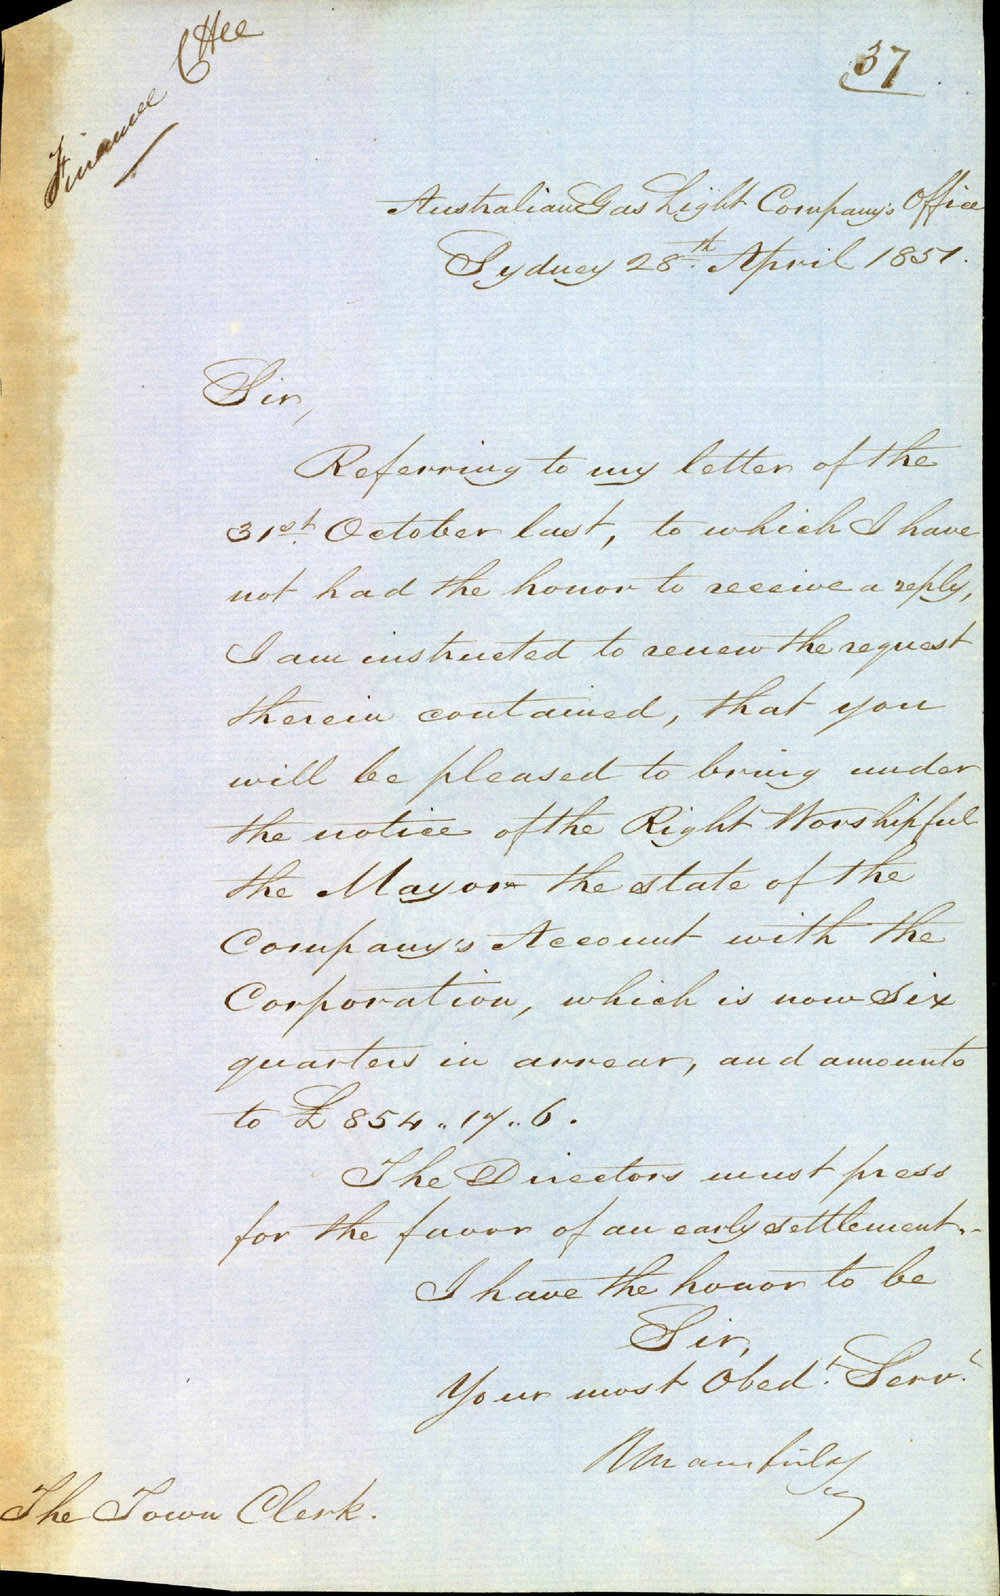 Finance Cttee
37
Australian Gas Light Company's Office
Sydney 28th. April 1851.
Sir,
Referring to my letter of the
31st. October last, to which I have
not had the honor to receive a reply,
I am instructed to renew the request
therein contained, that you
will be pleased to bring under
the notice of the Right Worshipful
the Mayor the state of the
Company's Account with the
Corporation, which is now six
quarters in arrear, and amounts
to £854..17..6.
The Directors must press
for the favor of an early settlement..
I have the honor to be
Sir,
Your most Obedt. Servt.
The Town Clerk.